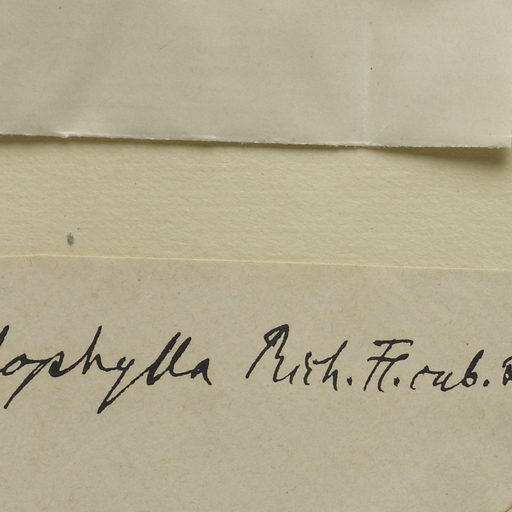 lophylla Rich. Fl. cub.